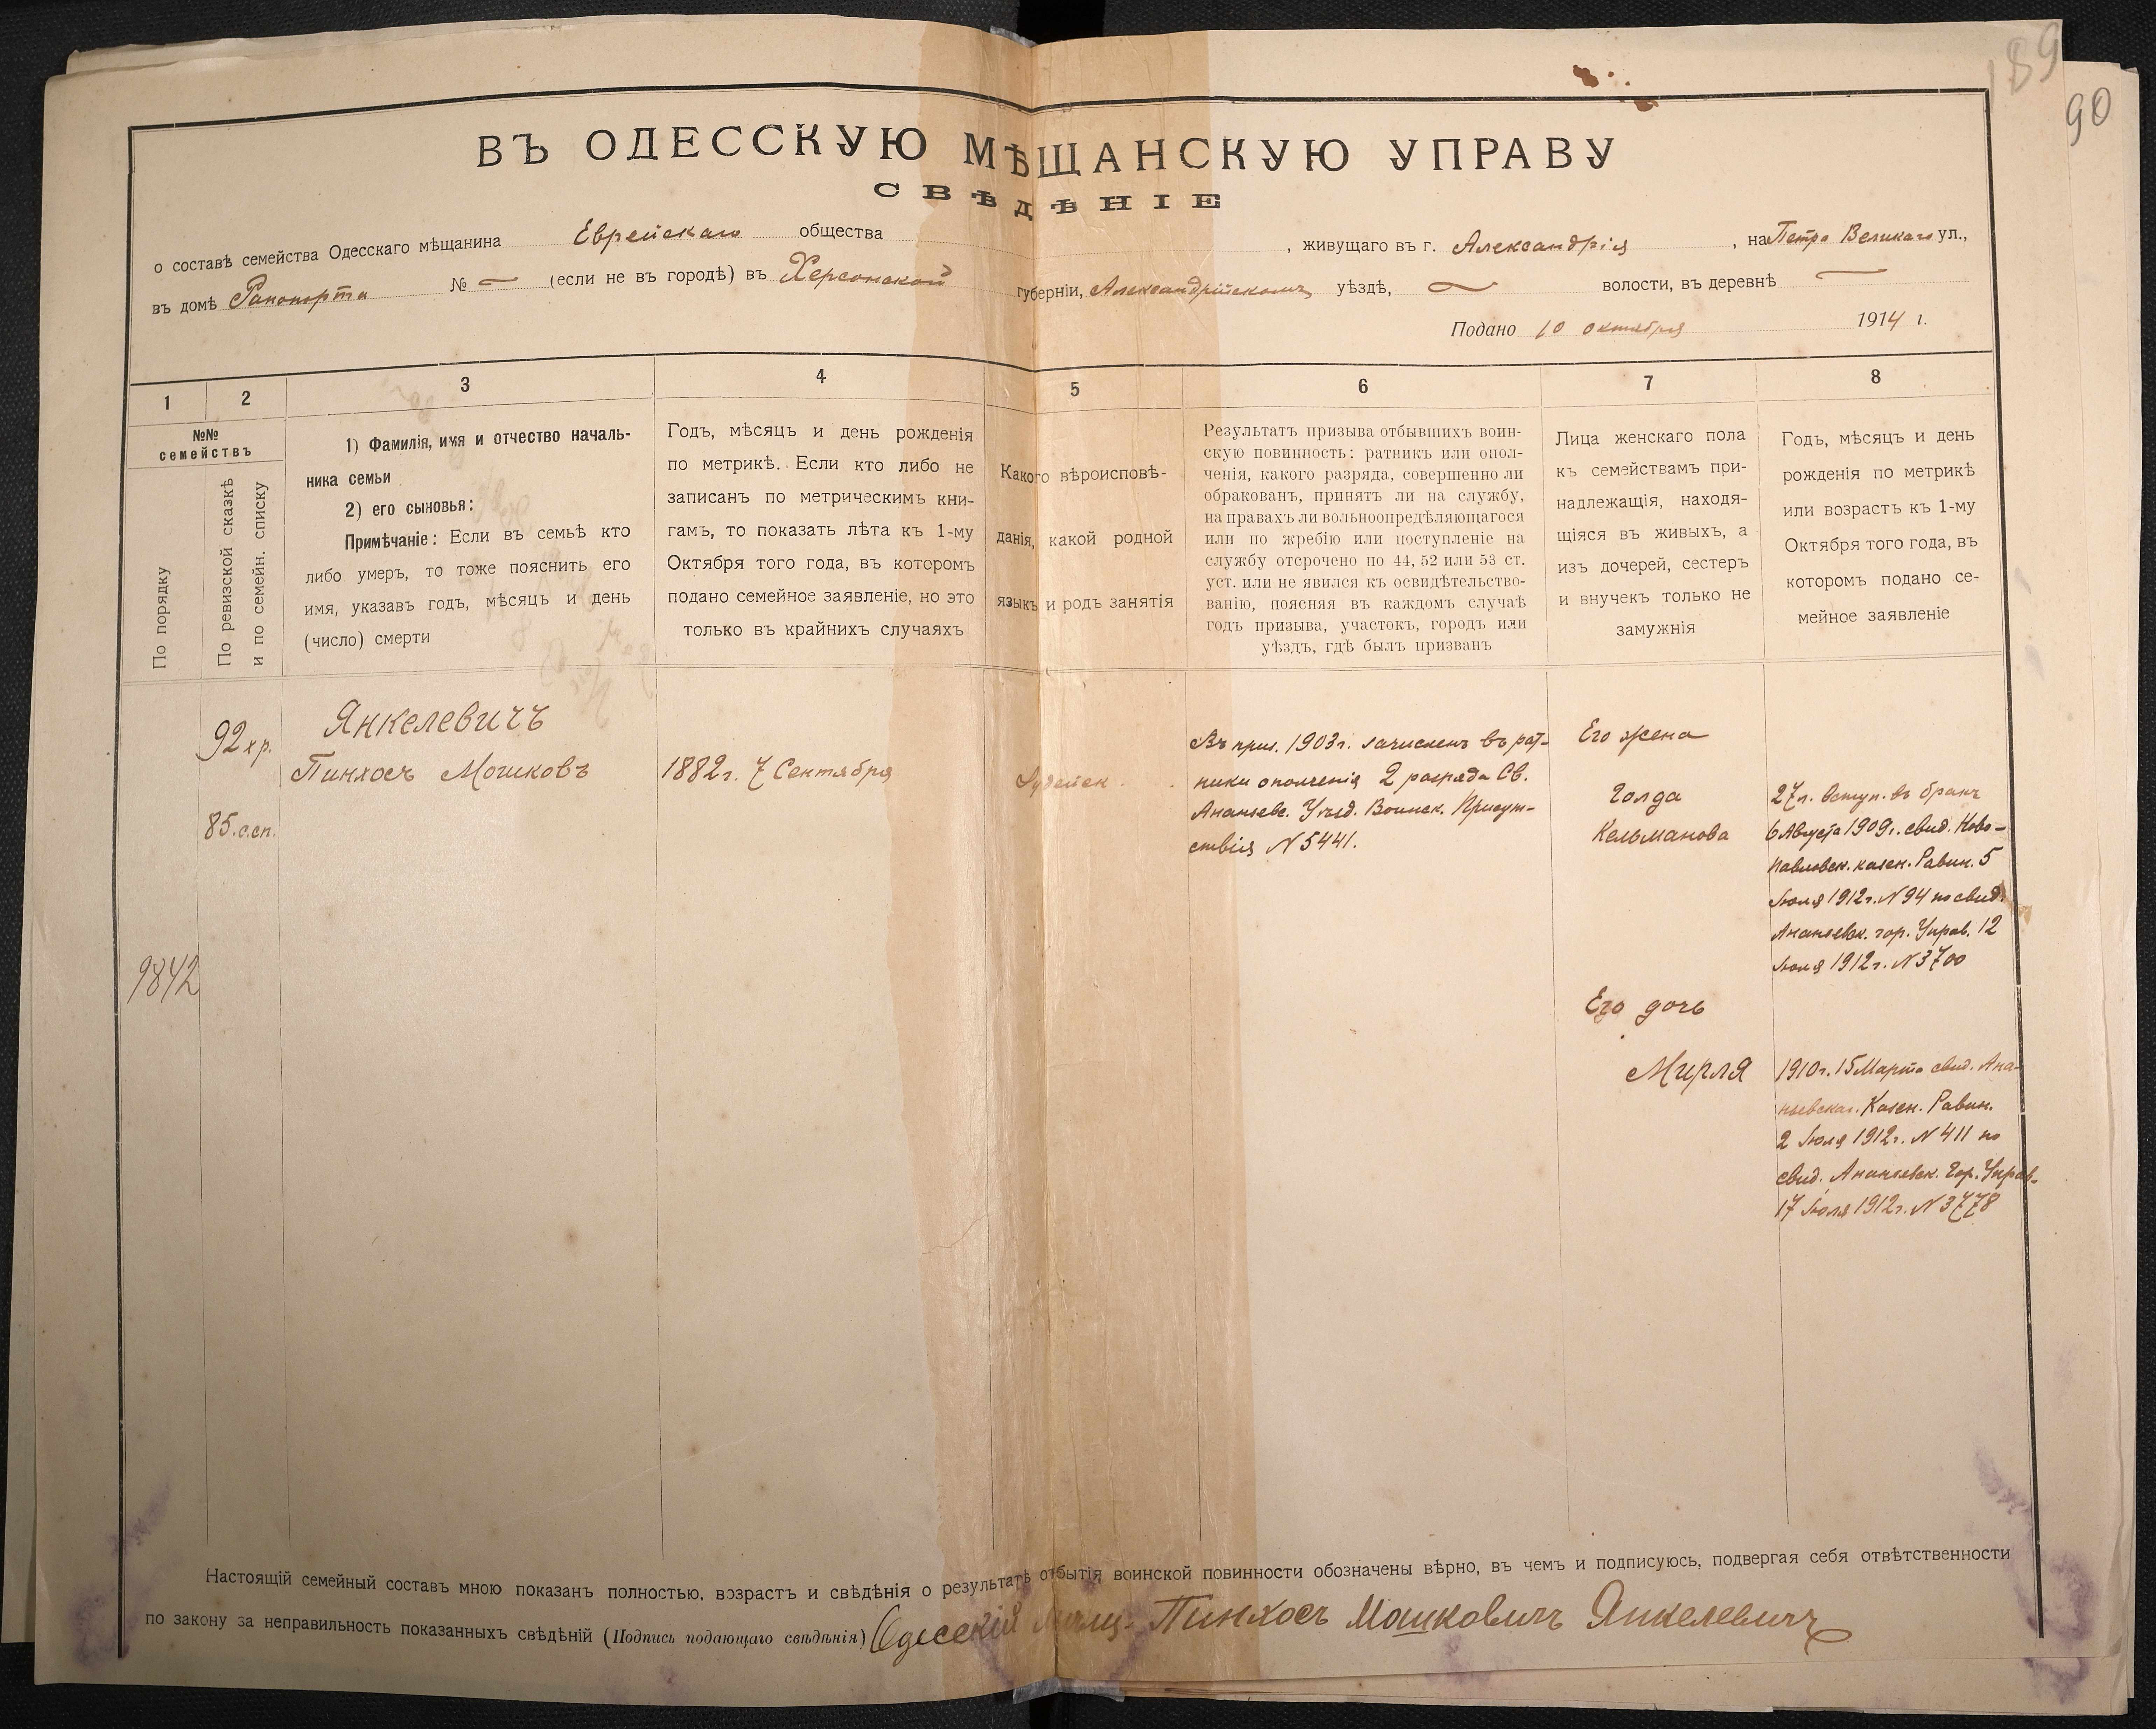 189
90
ВЪ ОДЕССКУЮ МѢЩАНСКУЮ УПРАВУ
СВѢДѢНІЕ
о составѣ семейства Одесскаго мѣщанина Еврейскаго общества , живущаго въ г. Александрія , на Петра Великаго ул.,
въ домѣ Рапопорта № — (если не въ городѣ) въ Херсонской губерніи, Александрійскомъ уѣздѣ, — волости, въ деревнѣ —
Подано 10 октября 1914 г.
1 2 3 4 5 6 7 8
№№
семействъ
По порядку
По ревизской сказкѣ
и по семейн. списку
1) Фамилія, имя и отчество началь-
ника семьи
2) его сыновья:
Примѣчаніе: Если въ семьѣ кто
либо умеръ, то тоже пояснить его
имя, указавъ годъ, мѣсяцъ и день
(число) смерти
Годъ, мѣсяцъ и день рожденія
по метрикѣ. Если кто либо не
записанъ по метрическимъ кни-
гамъ, то показать лѣта къ 1-му
Октября того года, въ которомъ
подано семейное заявленіе, но это
только въ крайнихъ случаяхъ
Какого вѣроисповѣ-
данія, какой родной
языкъ и родъ занятія
Результатъ призыва отбывшихъ воин-
скую повинность: ратникъ или опол-
ченія, какого разряда, совершенно ли
обракованъ, принятъ ли на службу,
на правахъ ли вольноопредѣляющагося
или по жребію или поступленіе на
службу отсрочено по 44, 52 или 53 ст.
уст. или не явился къ освидѣтельство-
ванію, поясняя въ каждомъ случаѣ
годъ призыва, участокъ, городъ или
уѣздъ, гдѣ былъ призванъ
Лица женскаго пола
къ семействамъ при-
надлежащія, находя-
щіяся въ живыхъ, а
изъ дочерей, сестеръ
и внучекъ только не
замужнія
Годъ, мѣсяцъ и день
рожденія по метрикѣ
или возрастъ къ 1-му
Октября того года, въ
которомъ подано се-
мейное заявленіе
92 хр.
85. с.сп.
9842
Янкелевичъ
Пинхосъ Мошковъ
1882 г. 7 Сентября
Іудейск.
Въ приз. 1903 г. зачисленъ въ рат-
ники ополченія 2 разряда Св.
Ананьевс. Уѣзд. Воинск. Присут-
ствія N 5441.
Его жена
Голда
Кельманова
27 л. Вступ. въ бракъ
6 Августа 1909 г. свид. Ново-
павловск. казен. Равин. 5
Іюля 1912 г. N 94 по свид.
Ананьевск. гор. Управ. 12
Іюля 1912 г. N 3700
Его дочь
Мирля
1910 г. 15 Марта свид. Ана-
ньевскаг. Казен. Равин.
2 Іюля 1912 г. N 411 по
свид. Ананьевск. Гор. Управ.
17 Іюля 1912 г. N 3778
Настоящій семейный составъ мною показанъ полностью, возрастъ и свѣдѣнія о результатѣ отбытія воинской повинности обозначены вѣрно, въ чемъ и подписуюсь, подвергая себя отвѣтственности
по закону за неправильность показанныхъ свѣдѣній (Подпись подающаго свѣдѣнія) Одесскій мѣщ. Пинхосъ Мошковичъ Янкелевичъ